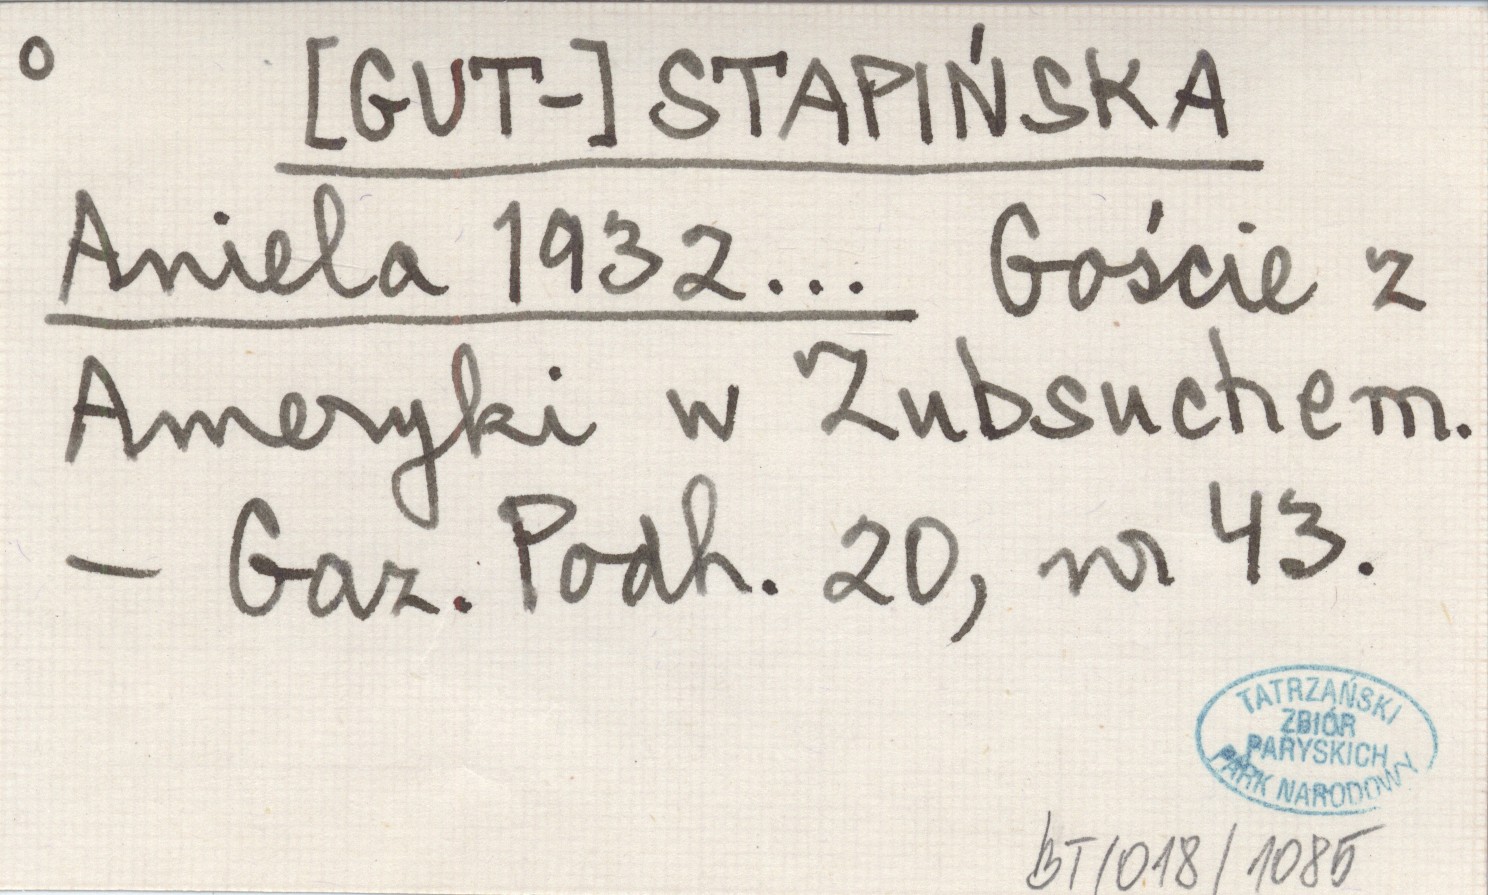 o [GUT-] STAPIŃSKA
Aniela 1932... Goście z
Ameryki w Zubsuchem.
– Gaz. Podh. 20, nr 43.
TATRZAŃSKI
ZBIÓR
PARYSKICH
PARK NARODOWY
BT/018/1085